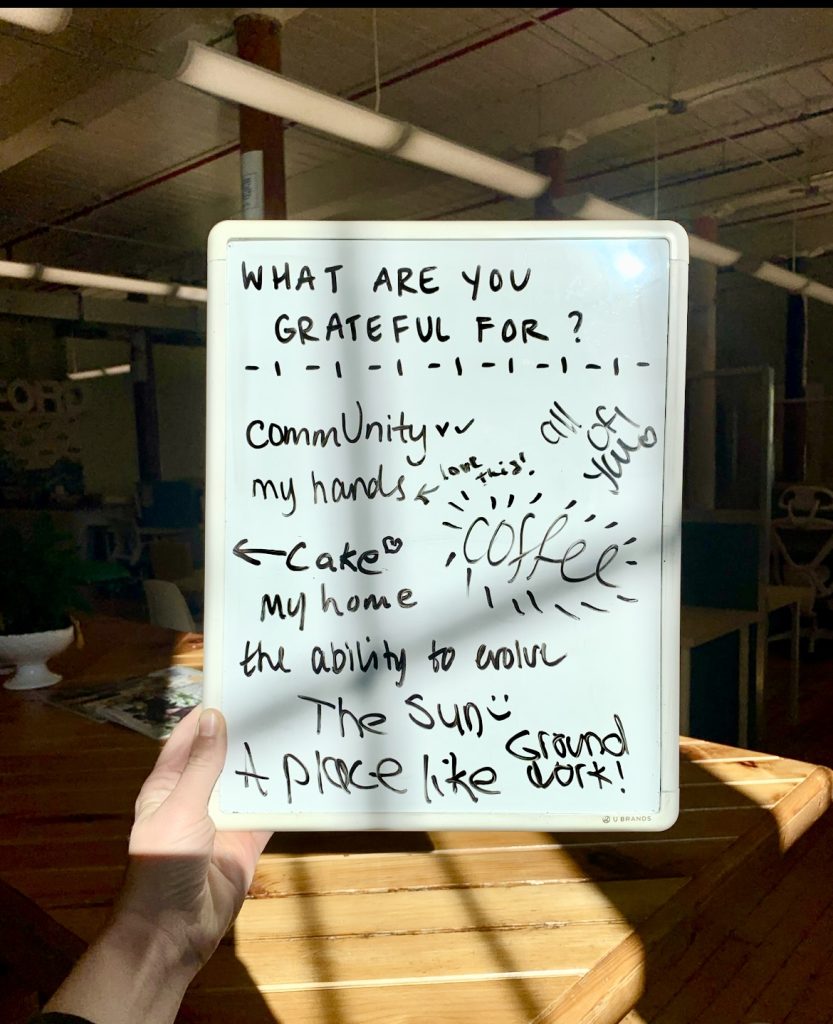 WHAT ARE YOU
GRATEFUL FOR?
commUnity
all
of
you
my hands
love
this!
coffee
Cake
my home
the ability to evolve
The Sun
A place like Ground
work!
U BRANDS